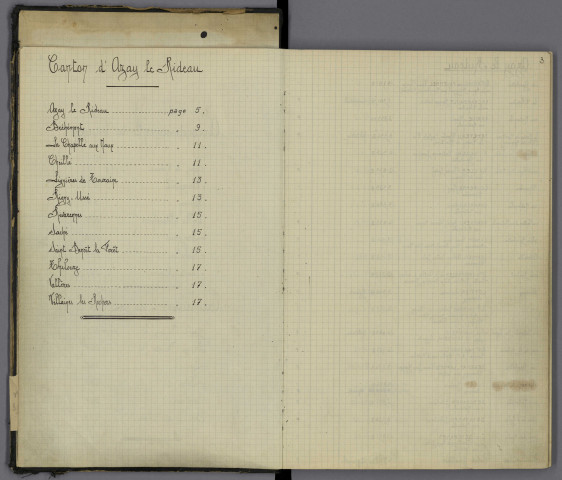 Canton d'Azay le Rideau
Azay le Rideau page 5.
Bréhémont " 9.
La Chapelle aux Naux " 11.
Cheillé " 11.
Lignières de Touraine " 13.
Rigny-Ussé " 13.
Rivarennes " 15.
Saché " 15.
Saint Benoît la Forêt " 15.
Thilouze " 17.
Vallères " 17.
Villaines les Rochers " 17.
3